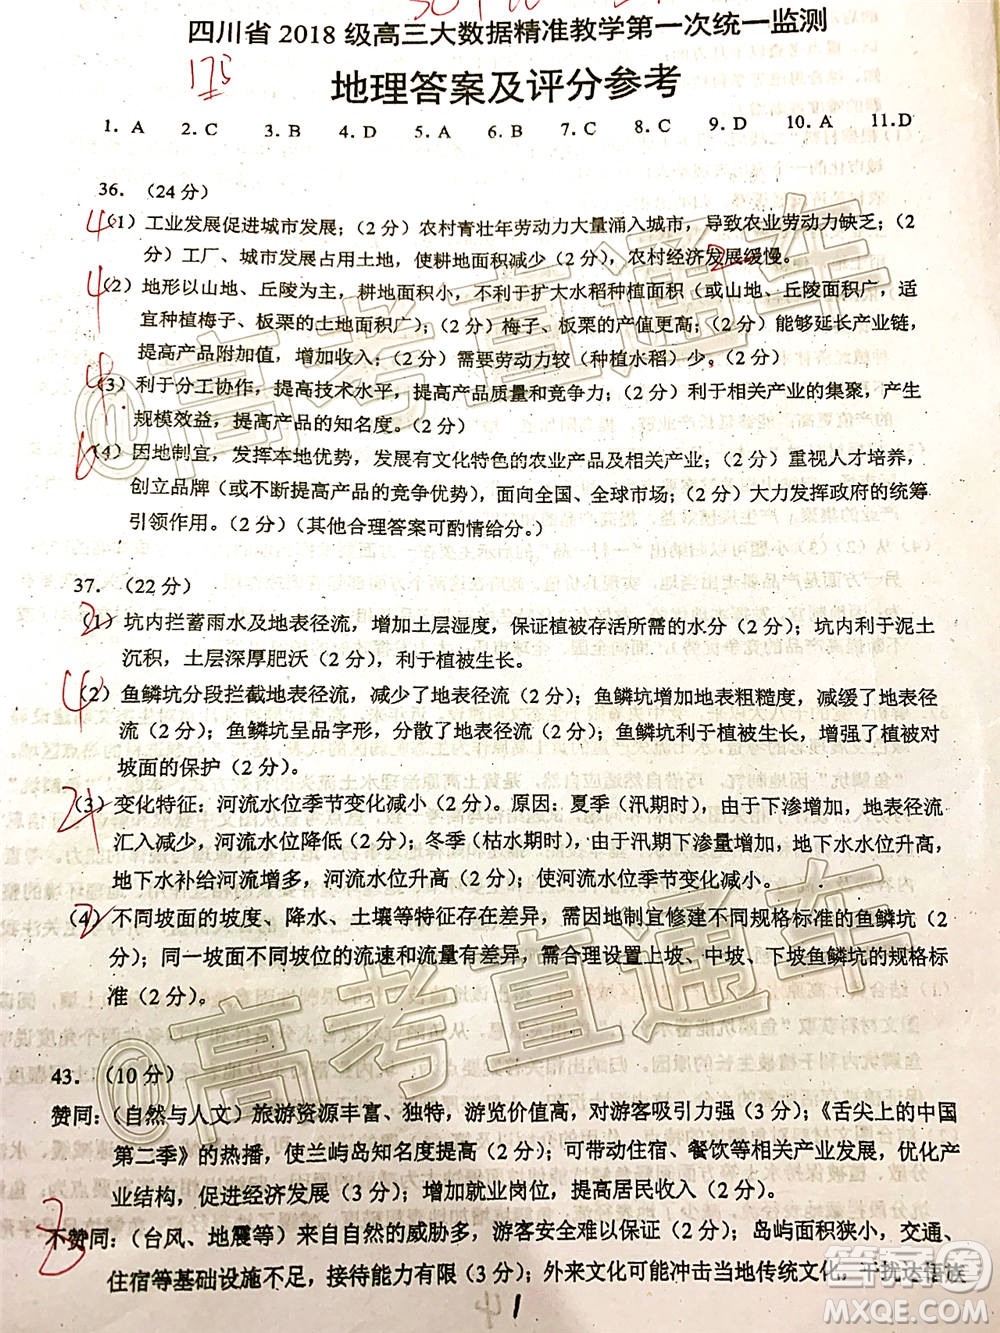 四川省 2018 级高三大数据精准教学第一次统一监测
175
地理答案及评分参考
1. A 2. C 3. B 4. D 5. A 6. B 7. C 8. C 9. D 10. A 11. D
36. （24 分）
4 (1) 工业发展促进城市发展；（2 分）农村青壮年劳动力大量涌入城市，导致农业劳动力缺乏；（2
分）工厂、城市发展占用土地，使耕地面积减少（2 分），农村经济发展缓慢。
4 (2) 地形以山地、丘陵为主，耕地面积小，不利于扩大水稻种植面积（或山地、丘陵面积广，适
宜种植梅子、板栗的土地面积广）；（2 分）梅子、板栗的产值更高；（2 分）能够延长产业链，
提高产品附加值，增加收入；（2 分）需要劳动力较（种植水稻）少。（2 分）
(3) 利于分工协作，提高技术水平，提高产品质量和竞争力；（2 分）利于相关产业的集聚，产生
规模效益，提高产品的知名度。（2 分）
6 (4) 因地制宜，发挥本地优势，发展有文化特色的农业产品及相关产业；（2 分）重视人才培养，
创立品牌（或不断提高产品的竞争优势），面向全国、全球市场；（2 分）大力发挥政府的统筹
引领作用。（2 分）（其他合理答案可酌情给分。）
37. （22 分）
2 (1) 坑内拦蓄雨水及地表径流，增加土层湿度，保证植被存活所需的水分（2 分）；坑内利于泥土
沉积，土层深厚肥沃（2 分），利于植被生长。
4 (2) 鱼鳞坑分段拦截地表径流，减少了地表径流（2 分）；鱼鳞坑增加地表粗糙度，减缓了地表径
流（2 分）；鱼鳞坑呈品字形，分散了地表径流（2 分）；鱼鳞坑利于植被生长，增强了植被对
坡面的保护（2 分）
(3) 变化特征：河流水位季节变化减小（2 分）。原因：夏季（汛期时），由于下渗增加，地表径流
汇入减少，河流水位降低（2 分）；冬季（枯水期时），由于汛期下渗量增加，地下水水位升高，
地下水补给河流增多，河流水位升高（2 分）；使河流水位季节变化减小。
2 (4) 不同坡面的坡度、降水、土壤等特征存在差异，需因地制宜修建不同规格标准的鱼鳞坑（2
分）；同一坡面不同坡位的流速和流量有差异，需合理设置上坡、中坡、下坡鱼鳞坑的规格标
准（2 分）。
43. （10 分）
赞同：（自然与人文）旅游资源丰富、独特，游览价值高，对游客吸引力强（3 分）；《舌尖上的中国
第二季》的热播，使兰屿岛知名度提高（2 分）；可带动住宿、餐饮等相关产业发展，优化产
业结构，促进经济发展（3 分）；增加就业岗位，提高居民收入（2 分）。
3 不赞同：（台风、地震等）来自自然的威胁多，游客安全难以保证（2 分）；岛屿面积狭小，交通、
住宿等基础设施不足，接待能力有限（3 分）；外来文化可能冲击当地传统文化，干扰达悟族
4 1
@高考直通车
@高考直通车
答案圈
MXQE.COM